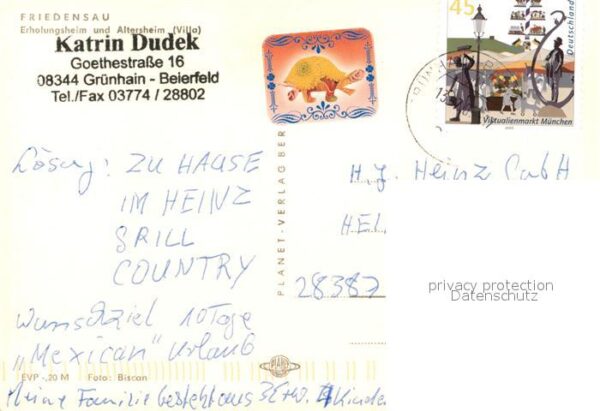 FRIEDENSAU
Erholungsheim und Altersheim (Villa)
Katrin Dudek
Goethestraße 16
08344 Grünhain - Beierfeld
Tel./Fax 03774 / 28802
Lösung: ZU HAUSE
IM HEINZ
GRILL
COUNTRY
Wunschziel 10 Tage
„Mexican" Urlaub
EVP -,20 M Foto: Biscan
Meine Familie besteht aus 3 Erw. 4 Kinder
PLANET-VERLAG BER
45
Deutschland
Viktualienmarkt München
H. J. Heinz GmbH
28387
privacy protection
Datenschutz